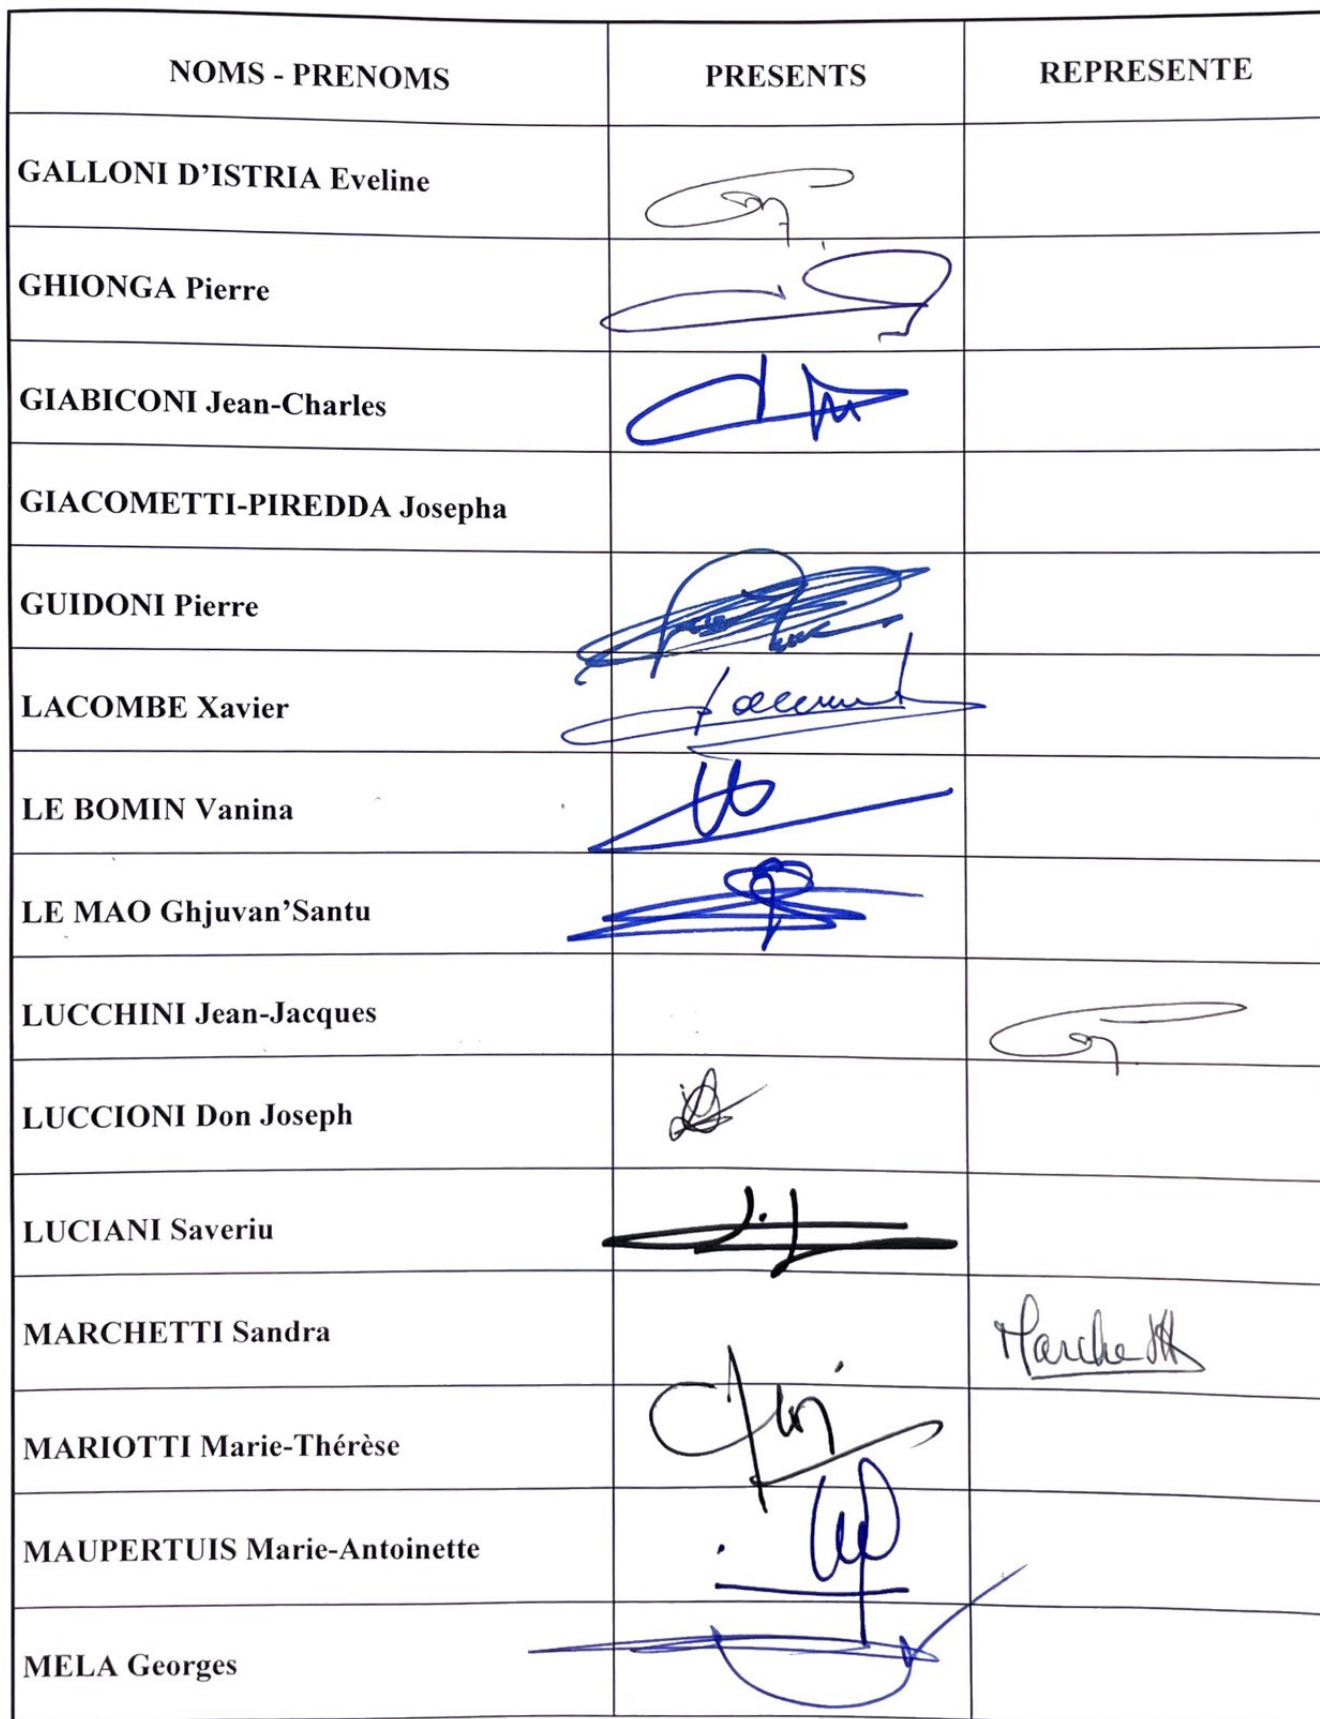 NOMS - PRENOMS PRESENTS REPRESENTE
GALLONI D'ISTRIA Eveline
GHIONGA Pierre
GIABICONI Jean-Charles
GIACOMETTI-PIREDDA Josepha
GUIDONI Pierre
LACOMBE Xavier
LE BOMIN Vanina
LE MAO Ghjuvan'Santu
LUCCHINI Jean-Jacques
LUCCIONI Don Joseph
LUCIANI Saveriu
MARCHETTI Sandra Marchetti
MARIOTTI Marie-Thérèse
MAUPERTUIS Marie-Antoinette
MELA Georges